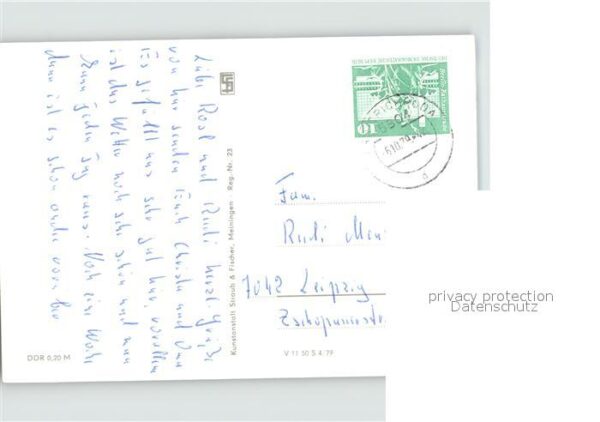 Liebe Rosl und Rudi herzl. Grüße
von hier senden Euch Christa und
Es gefällt uns sehr gut hier, vor allem
ist das Wetter noch sehr schön und man
kann jeden Tag raus. Noch eine Woche
dann ist es schon wieder vorbei
DDR 0,20 M
Reg.-Nr. 23
Kunstanstalt Straub & Fischer, Meiningen
V 11 50 S 4/79
DEUTSCHE DEMOKRATISCHE REPUBLIK
10
Fam.
Rudi
7042 Leipzig
privacy protection
Datenschutz